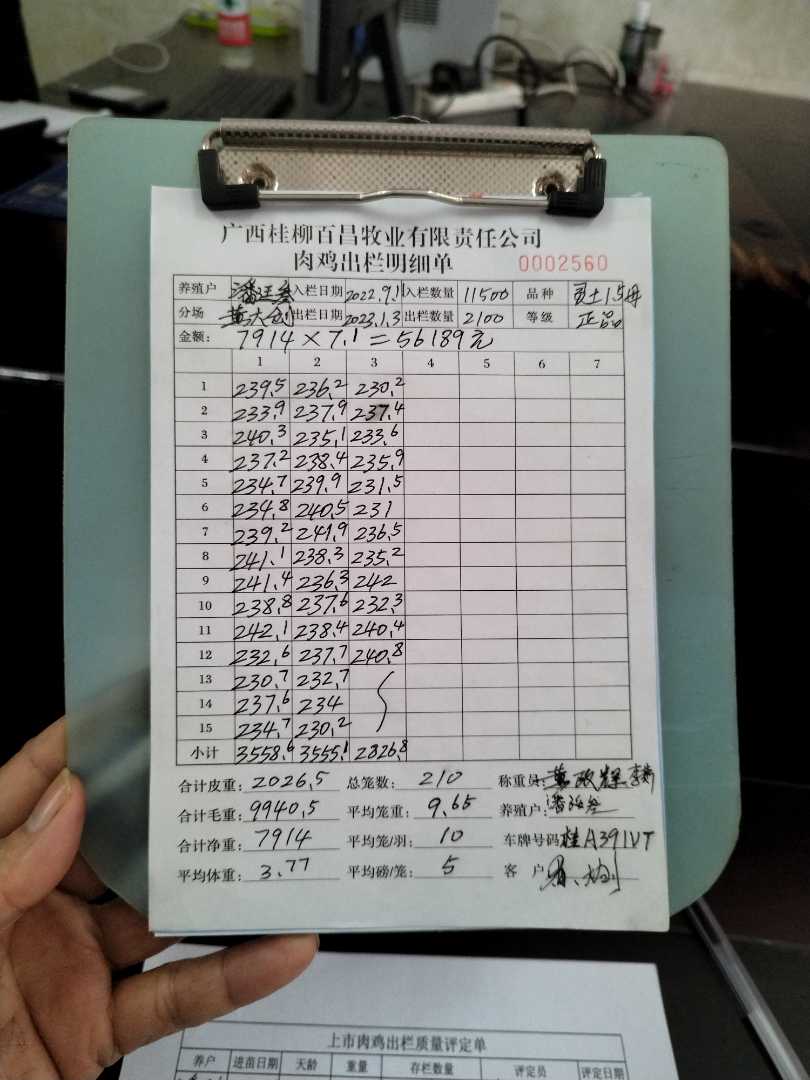 广西桂柳百昌牧业有限责任公司
肉鸡出栏明细单 0002560
养殖户 入栏日期 2022.9.1 入栏数量 11500 品种
分场 出栏日期 2023.1.3 出栏数量 2100 等级 正品
金额: 7914×7.1=56189元
1 2 3 4 5 6 7
1 239.5 236.2 230.2
2 233.9 237.9 237.4
3 240.3 235.1 233.6
4 237.2 238.4 235.9
5 234.7 239.9 231.5
6 234.8 240.5 231
7 239.2 241.9 236.5
8 241.1 238.3 235.2
9 241.4 236.3 242
10 238.8 237.6 232.3
11 242.1 238.4 240.4
12 232.6 237.7 240.8
13 230.7 232.7
14 237.6 234
15 234.7 230.2
小计 3558.6 3555.1 2826.8
合计皮重: 2026.5 总笼数: 210 称重员:
合计毛重: 9940.5 平均笼重: 9.65 养殖户:
合计净重: 7914 平均笼/羽: 10 车牌号码 桂A391VT
平均体重: 3.77 平均磅/笼: 5 客户
上市肉鸡出栏质量评定单
养户 进苗日期 天龄 重量 存栏数量 评定员 评定日期